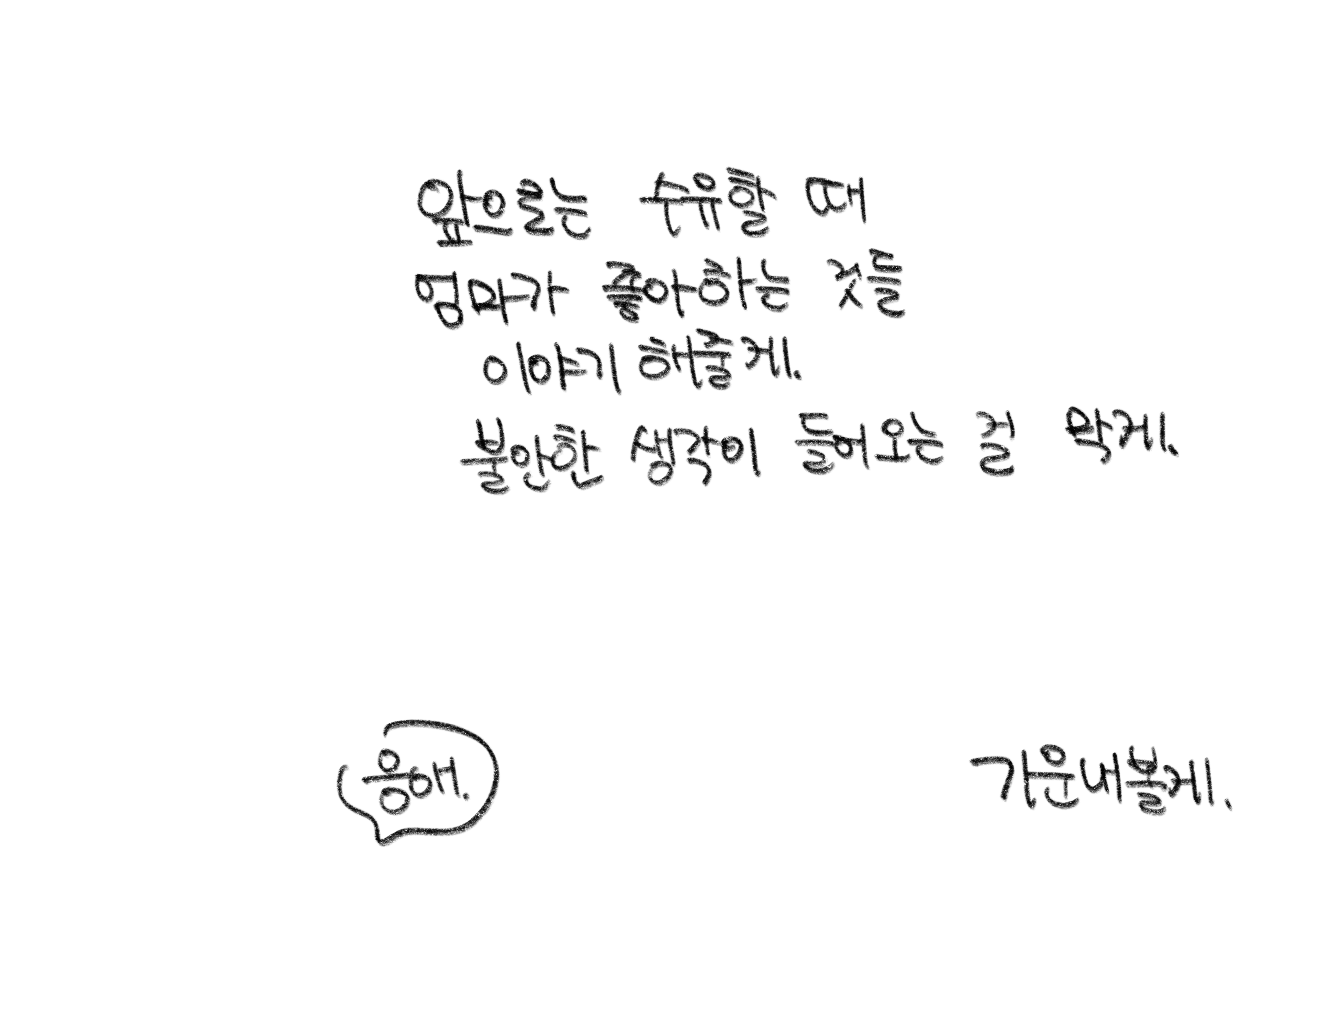 앞으로는 수유할 때
엄마가 좋아하는 것들
이야기 해줄게.
불안한 생각이 들어오는 걸 막게.
응애.
기운내볼게.